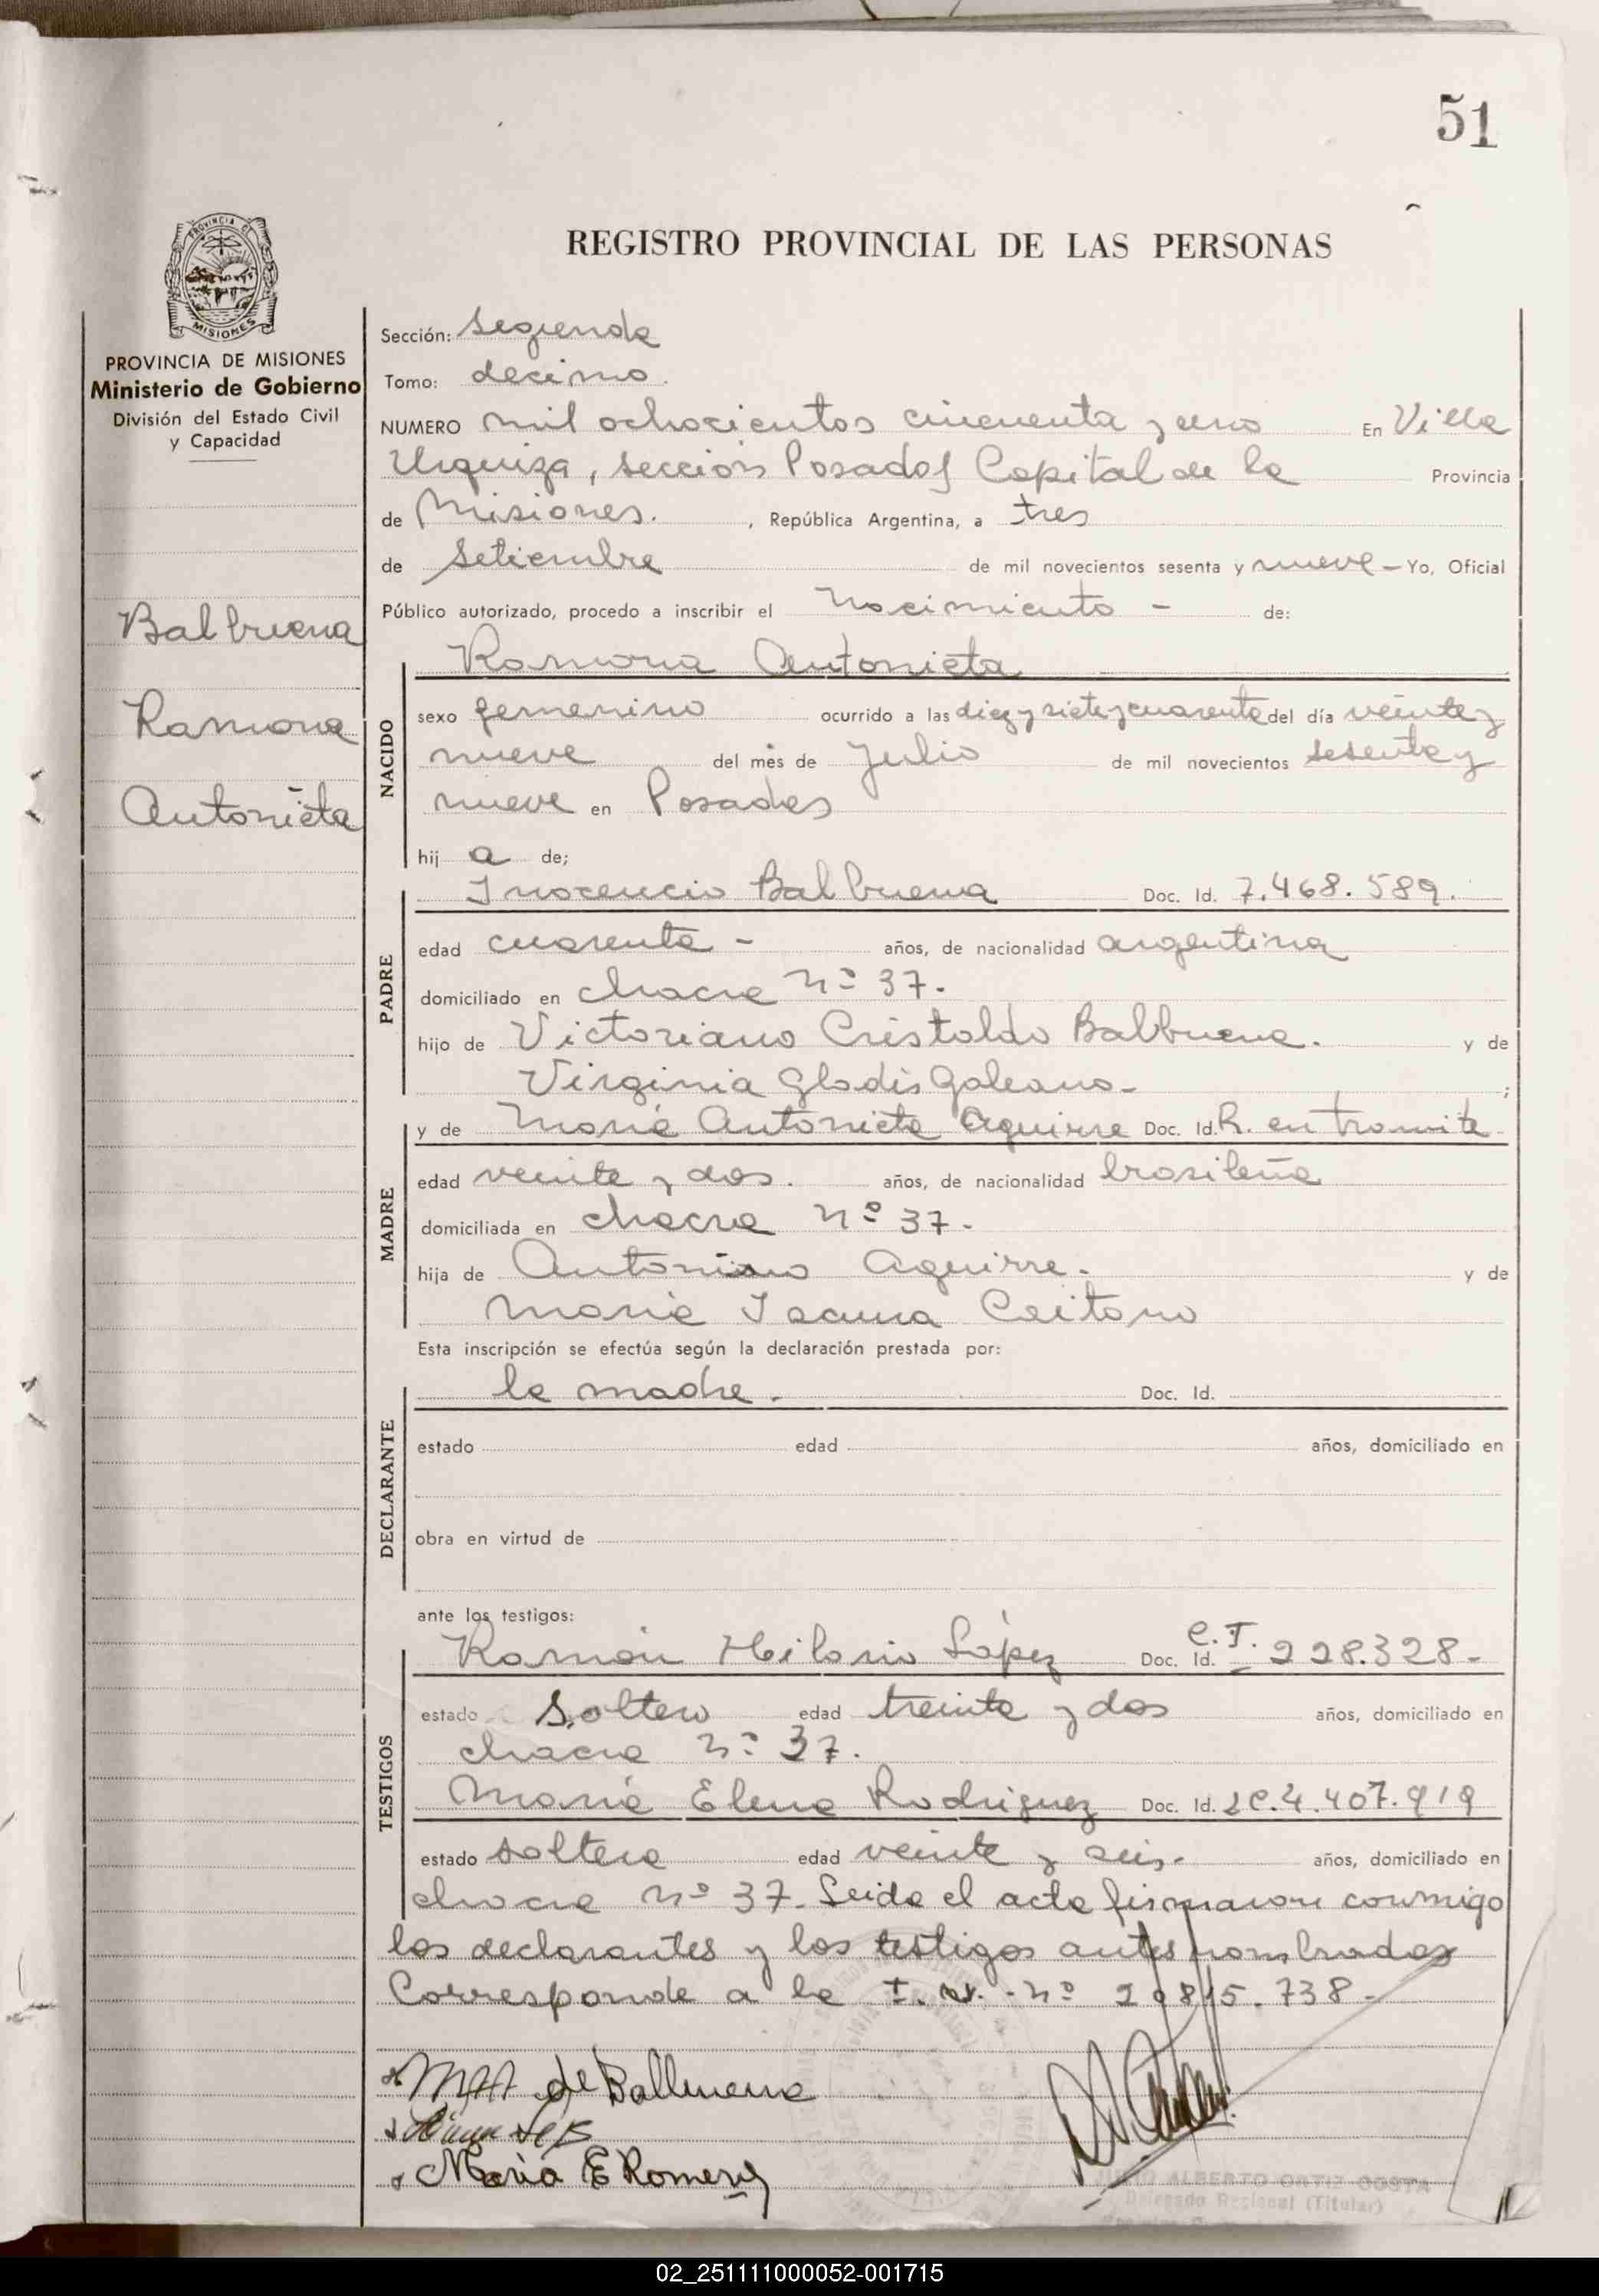 51
PROVINCIA DE
MISIONES
PROVINCIA DE MISIONES
Ministerio de Gobierno
División del Estado Civil
y Capacidad
Balbuena
Ramona
Antonieta
REGISTRO PROVINCIAL DE LAS PERSONAS
Sección: Segunda
Tomo: decimo.
NUMERO mil ochocientos cincuenta y uno En Villa
Urquiza, sección Posadas Capital de la Provincia
de Misiones. , República Argentina, a tres
de Setiembre de mil novecientos sesenta y nueve - Yo, Oficial
Público autorizado, procedo a inscribir el Nacimiento - de:
Ramona Antonieta
NACIDO
sexo femenino ocurrido a las diez y siete y cuarenta del día veinte y
nueve del mes de Julio de mil novecientos sesenta y
nueve en Posadas
hij a de;
Inocencio Balbuena Doc. Id. 7.468.589.
PADRE
edad cuarenta - años, de nacionalidad argentina
domiciliado en chacra nº 37.
hijo de Victoriano Cristaldo Balbuena. y de
Virginia Gladis Galeano- ;
y de María Antonieta Aguirre Doc. Id. R. en tramite
MADRE
edad veinte y dos. años, de nacionalidad brasileña
domiciliada en chacra nº 37-
hija de Aguirre. y de
María
Esta inscripción se efectúa según la declaración prestada por:
la madre. Doc. Id.
DECLARANTE
estado edad años, domiciliado en
obra en virtud de
ante los testigos:
Ramón Hilario López Doc. Id. C.I. 228.328-
TESTIGOS
estado Soltero edad treinta y dos años, domiciliado en
chacra nº 37.
María Elena Rodriguez Doc. Id. 4.407.919
estado soltera edad veinte y seis- años, domiciliado en
chacra nº 37- Leida el acta firmaron conmigo
los declarantes y los testigos antes nombrados
Corresponde a la nº 20815.738-
de Balbuena
María E
ALBERTO ORTIZ COSTA
Delegado Regional (Titular)
02_251111000052-001715